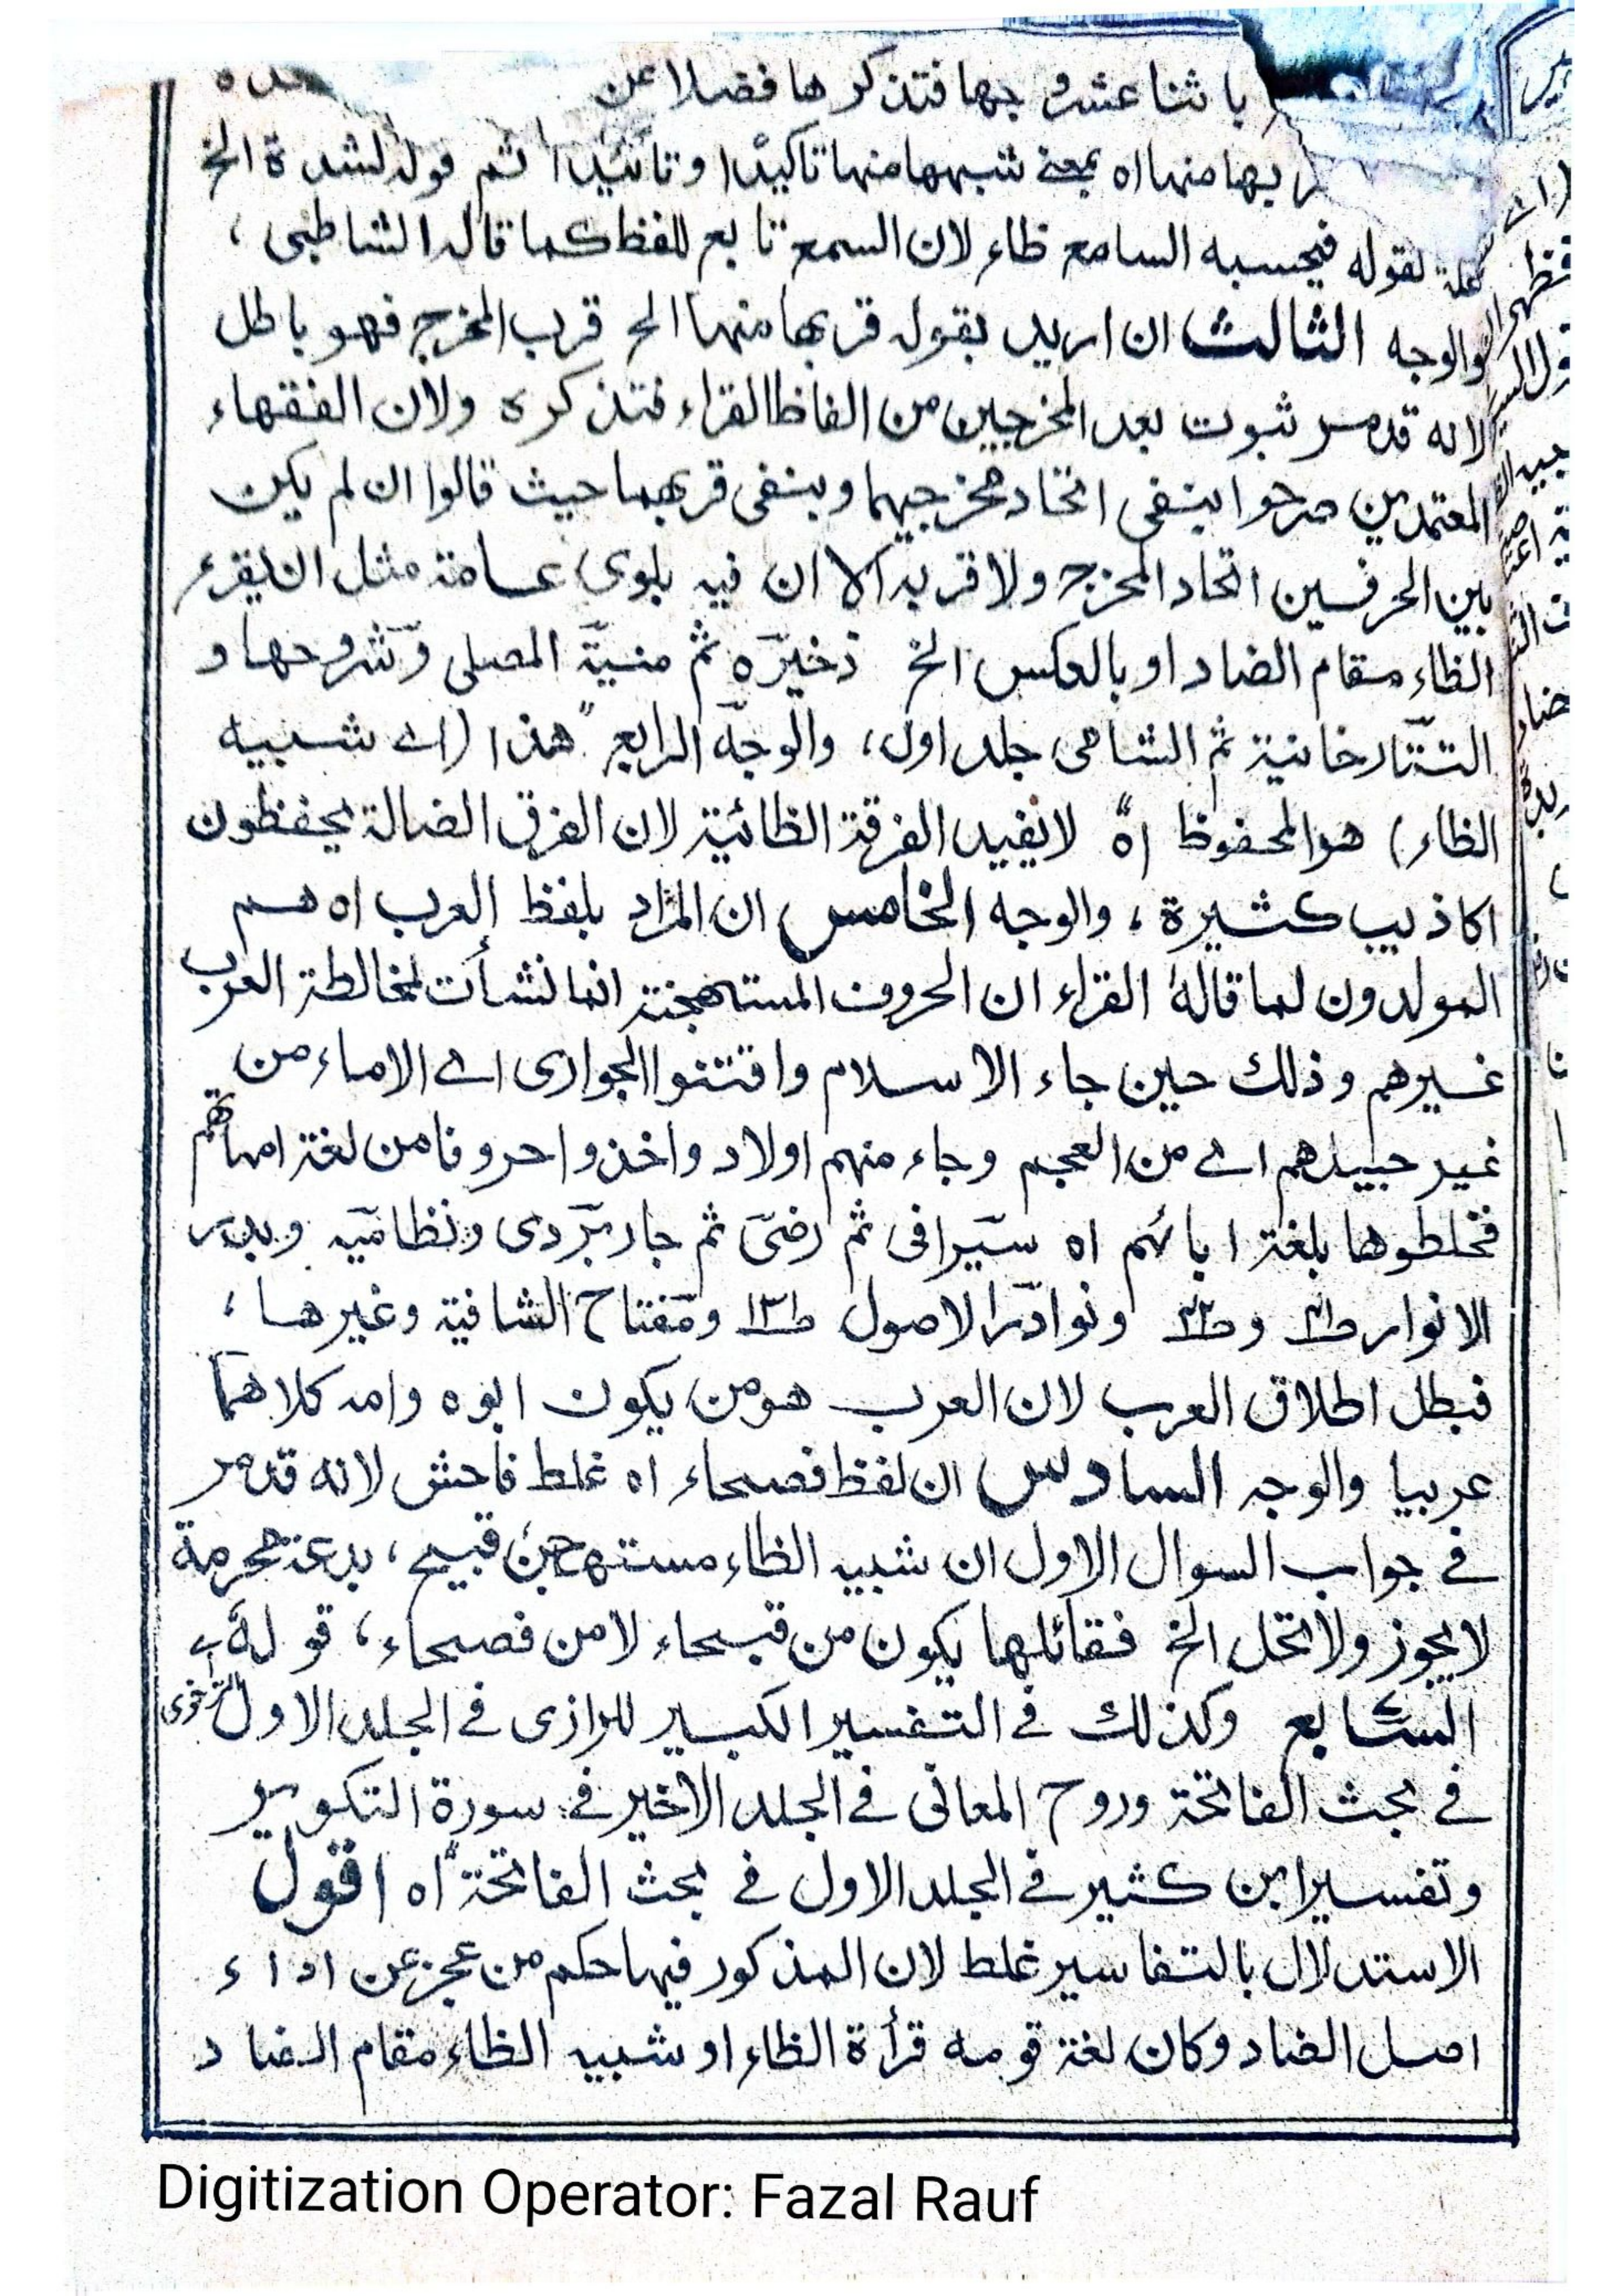 با ثنا عشر وجها فتذكرها فضلا عن
بها منها اه بمعنے شبهها منها تاكيدًا وتائيدا ثم قوله لشدة الخ
لقوله فيحسبه السامع ظاء لان السمع تابع للفظ كما قاله الشاطبى ،
والوجه الثالث ان اريد بقوله قربها منها الخ قرب المخرج فهو باطل
لانه قد مر ثبوت بعد المخرجين من الفاظ القراء فتذكره ولان الفقهاء
المعتمدين صرحوا بنفى اتحاد مخرجيهما وبنفى قربهما حيث قالوا ان لم يكن
بين الحرفين اتحاد المخرج ولا قربه الا ان فيه بلوى عامة مثل ان يقرء
الظاء مقام الضاد او بالعكس الخ ذخيره ثم منية المصلى وشروحها و
التتارخانية ثم الشامى جلد اول، والوجه الرابع "هذا (اے شبيه
الظاء) هو المحفوظ اه" لا يفيد الفرقة الظائية لان الفرق الضالة يحفظون
اكاذيب كثيرة ، والوجه الخامس ان المراد بلفظ العرب اه هم
المولدون لما قاله القراء ان الحروف المستهجنة انما نشأت لمخالطة العرب
غيرهم وذلك حين جاء الاسلام واقتنوا الجوارى اے الاماء من
غير جيلهم اے من العجم وجاء منهم اولاد واخذوا حروفا من لغة امهاتهم
فخلطوها بلغة ابائهم اه سيرافى ثم رضى ثم جاربردى ونظاميه وبدر
الانوار و ونوادر الاصول ومفتاح الشافية وغيرها ،
فبطل اطلاق العرب لان العرب هو من يكون ابوه وامه كلاهما
عربيا والوجه السادس ان لفظ فصحاء اه غلط فاحش لانه قد مر
فے جواب السوال الاول ان شبيه الظاء مستهجن قبيح ، بدعة محرمة
لا يجوز ولا تحل الخ فقائلها يكون من قبحاء لا من فصحاء ، قوله
السابع وكذلك فے التفسير الكبير للرازى فے الجلد الاول
فے بحث الفاتحة وروح المعانى فے الجلد الاخير فے سورة التكوير
وتفسير ابن كثير فے الجلد الاول فے بحث الفاتحة" اه اقول
الاستدلال بالتفاسير غلط لان المذكور فيها حكم من عجز عن اداء
اصل الضاد وكان لغة قومه قرأة الظاء او شبيه الظاء مقام الضاد
Digitization Operator: Fazal Rauf